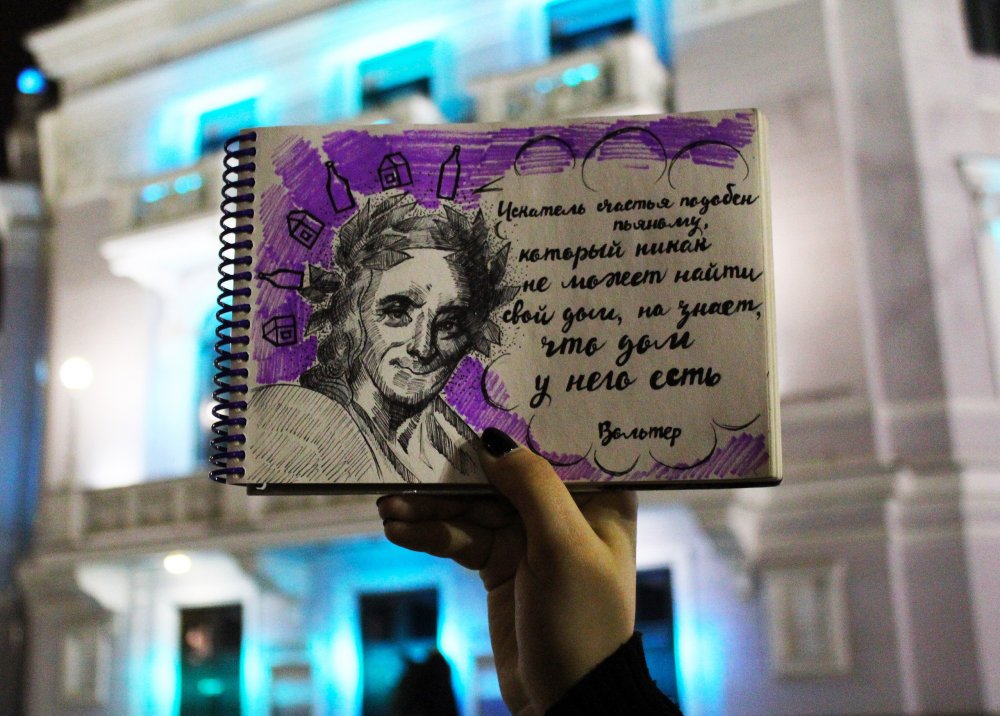 Искатель счастья подобен
пьяному,
который никак
не может найти
свой дом, но знает,
что дом
у него есть
Вольтер